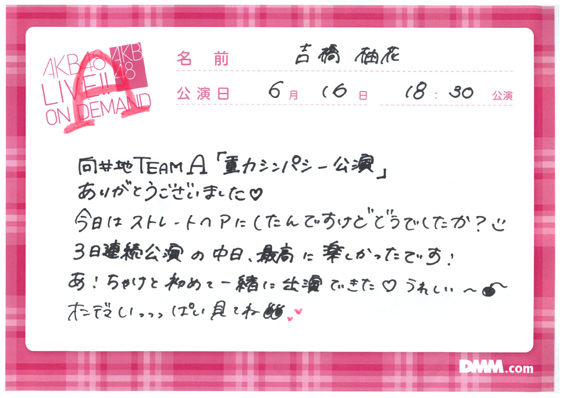 AKB48
LIVE!!
ON DEMAND
AKB
48
A
名前 吉橋 柚花
公演日 6月 16日 18:30 公演
向井地TEAM A「重力シンパシー公演」
ありがとうございました♡
今日はストレートヘアにしたんですけどどうでしたか?
3日連続公演の中日、最高に楽しかったです!
あ!ちゃけと初めて一緒に出演できた♡うれしい〜
オンデマいっっっぱい見てね
DMM.com